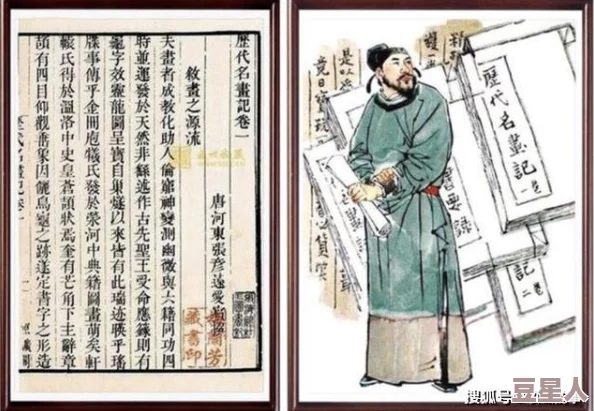 歷代名畫記卷一
敘畫之源流
唐河東張彥遠愛賓撰
夫畫者成教化助人倫窮神變測幽微與六籍同功四
時並運發於天然非繇述作古先聖王受命應籙則有
龜字效靈龍圖呈寶自巢燧以來皆有此瑞迹暎乎瑤
牒事傳乎金冊庖犧氏發於滎河中典籍圖畫萌矣軒
轅氏得於溫洛中史皇蒼頡狀焉奎有芒角下主辭章
頡有四目仰觀垂象因儷鳥龜之跡遂定書字之形造
歷代名畫記卷一
一
照曠閣
藏書印
盛世收藏
歷代名畫記
一卷
要錄
記
二卷
搜狐号
豆星人